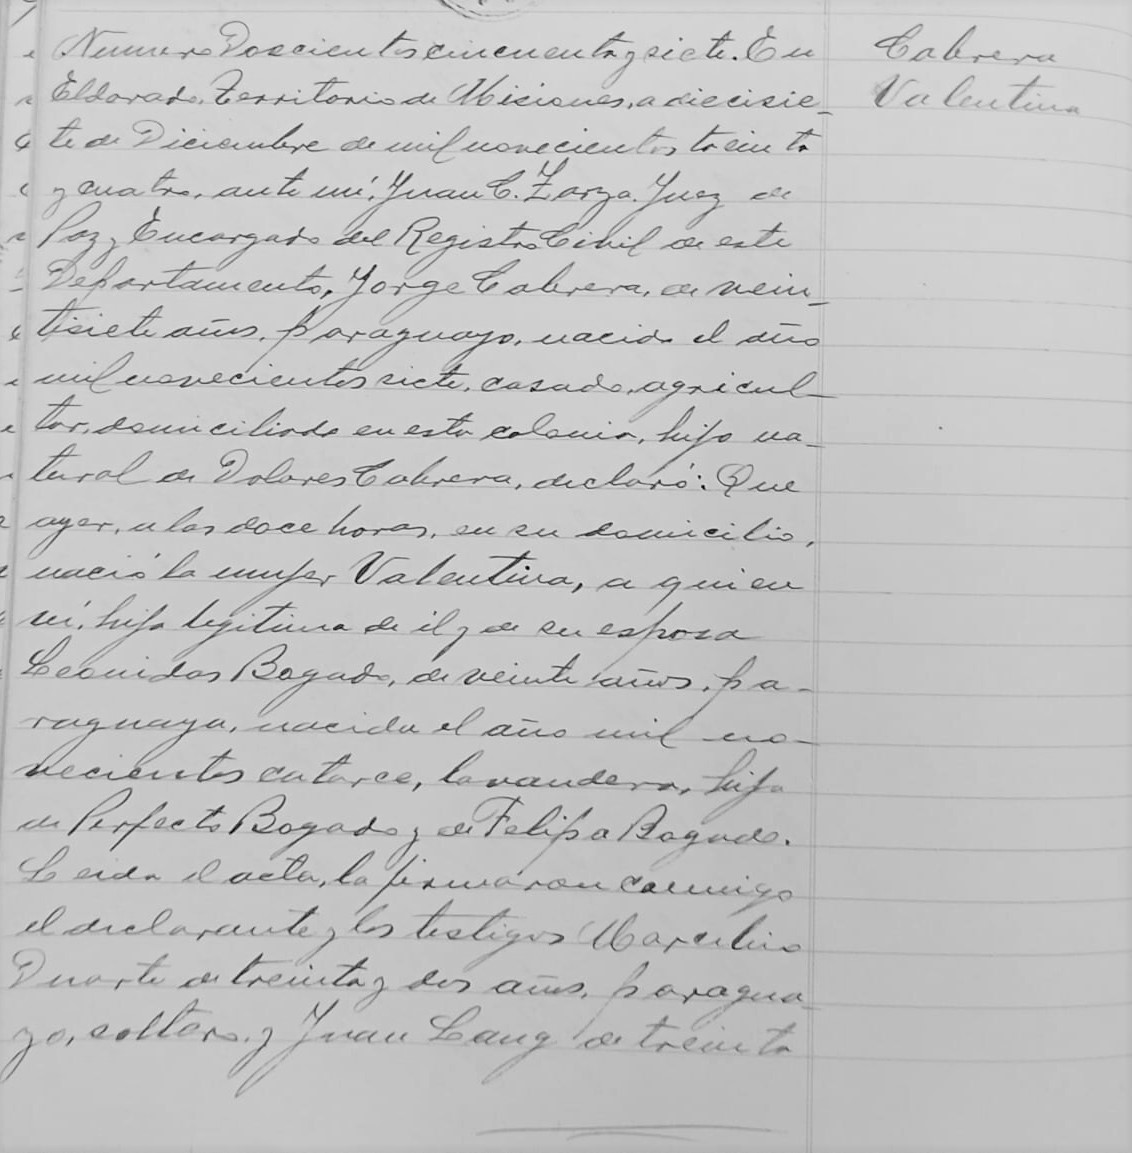 Numero Doscientos cincuenta y siete. En
Eldorado, Territorio de Misiones, a diecisie_
te de Diciembre de mil novecientos treinta
y cuatro, ante mí, Juan C. Zarza. Juez de
Paz y Encargado del Registro Civil de este
Departamento, Jorge Cabrera, de vein_
tisiete años, paraguayo, nacido el año
mil novecientos siete, casado, agricul_
tor, domiciliado en esta colonia, hijo na_
tural de Dolores Cabrera, declaró: Que
ayer, a las doce horas, en su domicilio,
nació la mujer Valentina, a quien
ví, hija legitima de él y de su esposa
Leonidas Bogado, de veinte años, pa_
raguaya, nacida el año mil no_
vecientos catorce, lavandera, hija
de Perfecto Bogado y de Felipa Bogado.
Leida el acta, la firmaron conmigo
el declarante y los testigos Marcelino
Duarte de treinta y dos años, paragua_
yo, soltero, y Juan Lang de treinta
Cabrera
Valentina